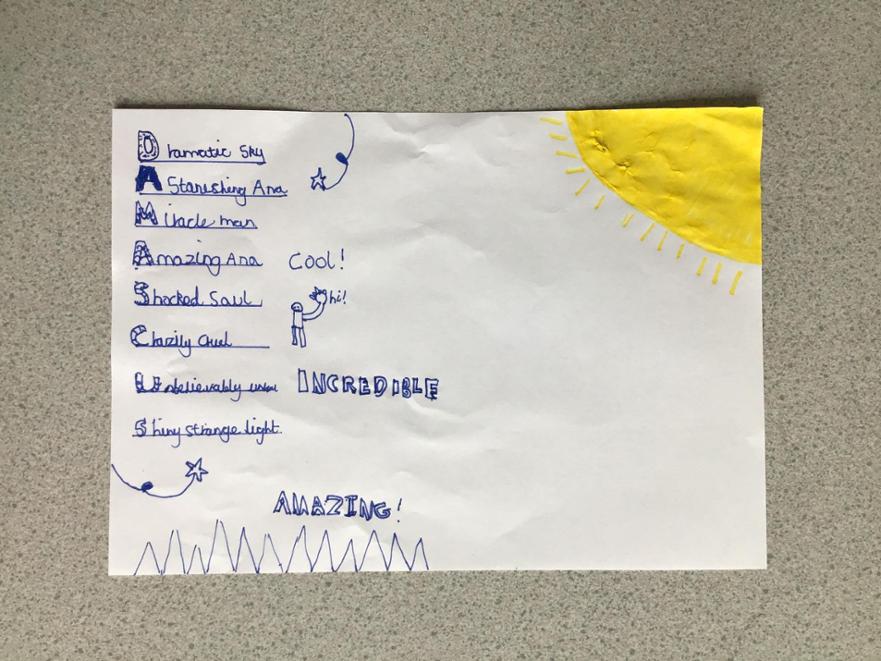 Dramatic Sky
AStonishing Ana
Miracle man
Amazing Ana Cool!
Shocked Saul hi!
Crazily cruel
Unbelievably
INCREDIBLE
Shiny strange light.
AMAZING!